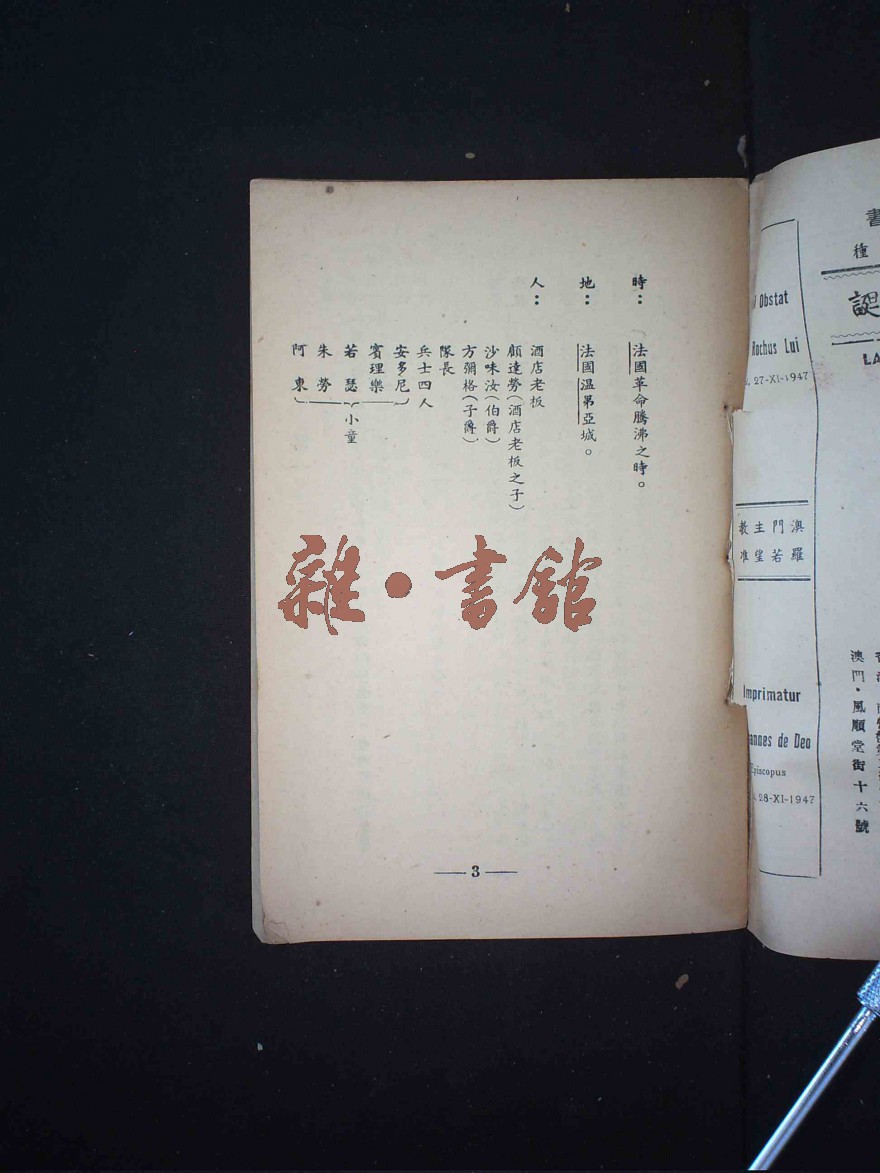 時：　法國革命騰沸之時。
地：　法國溫第亞城。
人：　酒店老板
顧達勞（酒店老板之子）
沙味汝（伯爵）
方彌格（子爵）
隊長
兵士四人
安多尼
賓理樂
若瑟
小童
朱勞
阿東
— 3 —
雜·書館
Obstat
Rochus Lui
27-XI-1947
澳門主教
羅若望准
Imprimatur
annes de Deo
Episcopus
28-XI-1947
種
誤
LA
澳門·風順堂街十六號